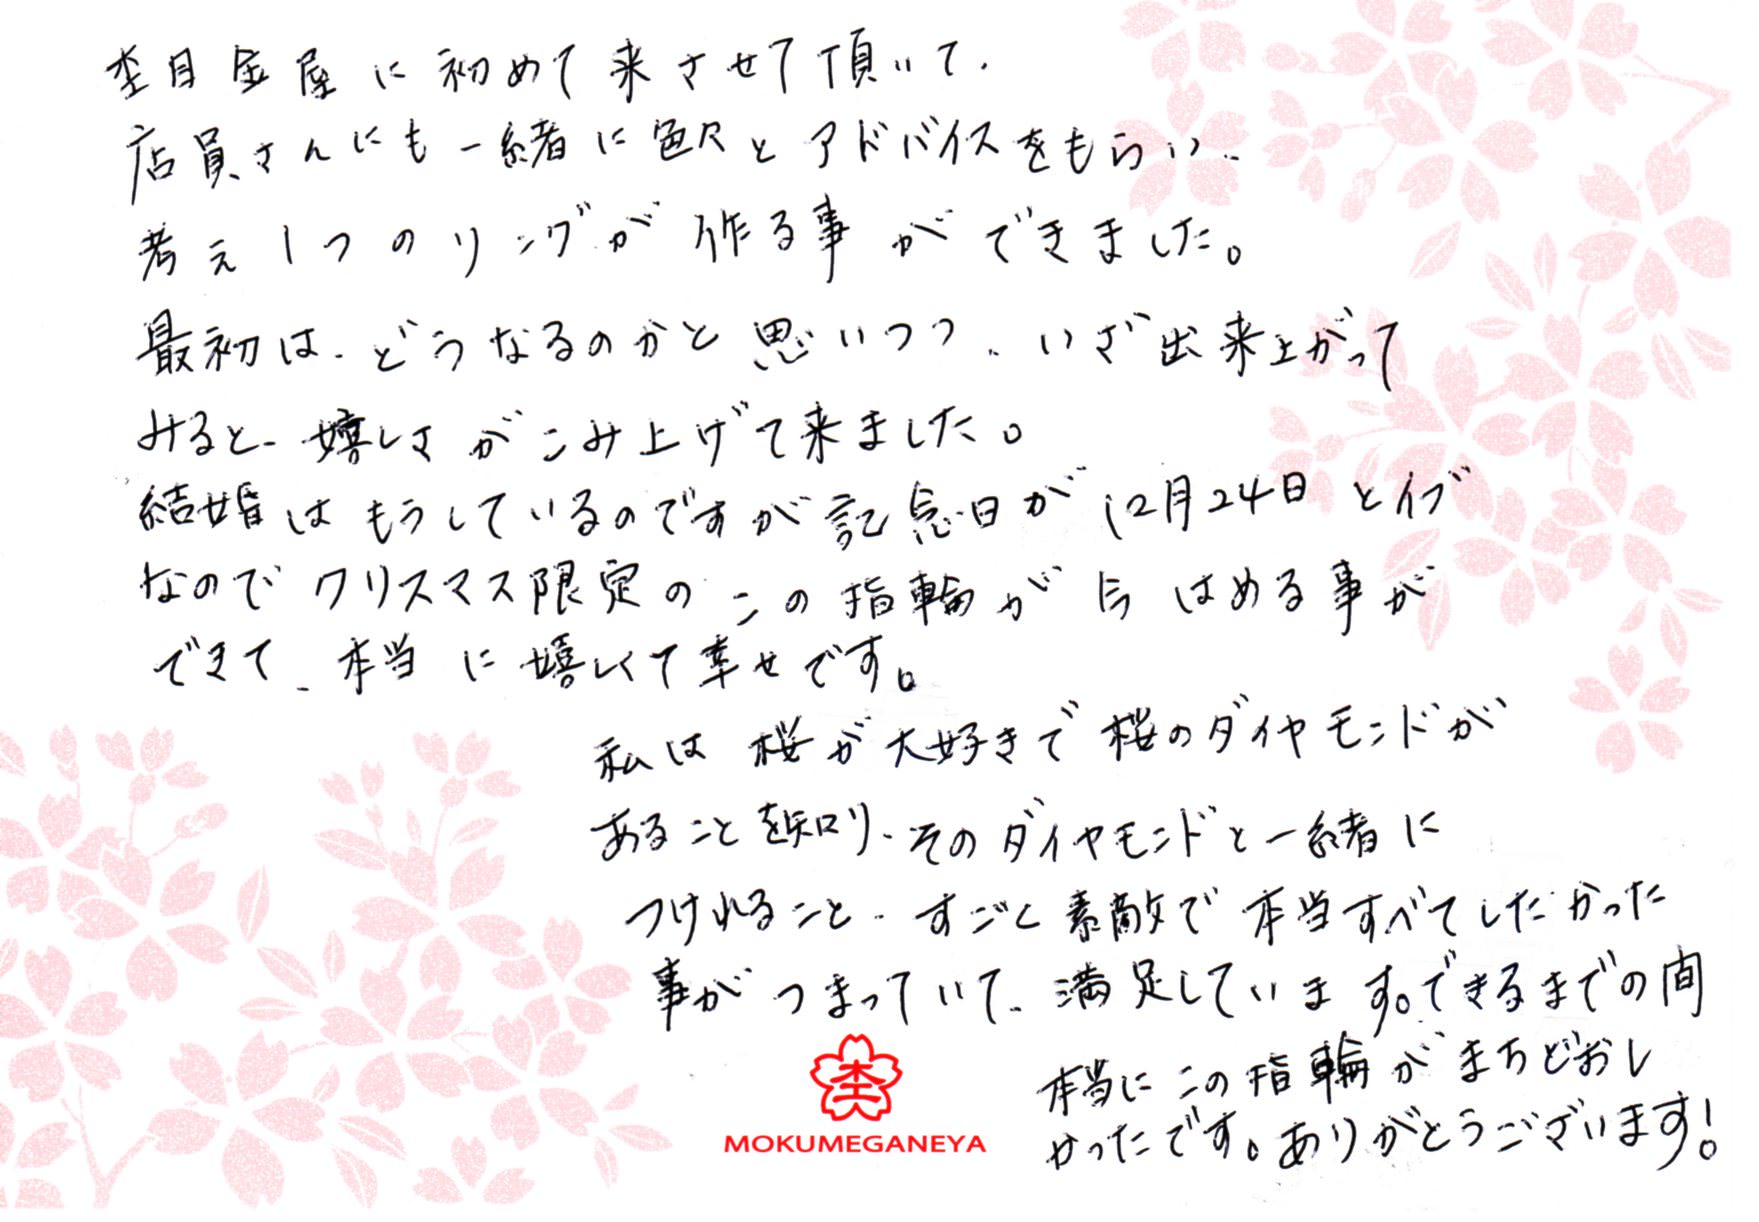 杢目金屋に初めて来させて頂いて、
店員さんにも一緒に色々とアドバイスをもらい、
考え1つのリングが作る事ができました。
最初は、どうなるのかと思いつつ、いざ出来上がって
みると、嬉しさがこみ上げて来ました。
結婚はもうしているのですが記念日が12月24日とイブ
なのでクリスマス限定のこの指輪が今はめる事が
できて、本当に嬉しくて幸せです。
私は桜が大好きで桜のダイヤモンドが
あることを知り、そのダイヤモンドと一緒に
つけれること、すごく素敵で本当すべてしたかった
事がつまっていて、満足しています。できるまでの間
本当にこの指輪がまちどおし
かったです。ありがとうございます!
杢
MOKUMEGANEYA